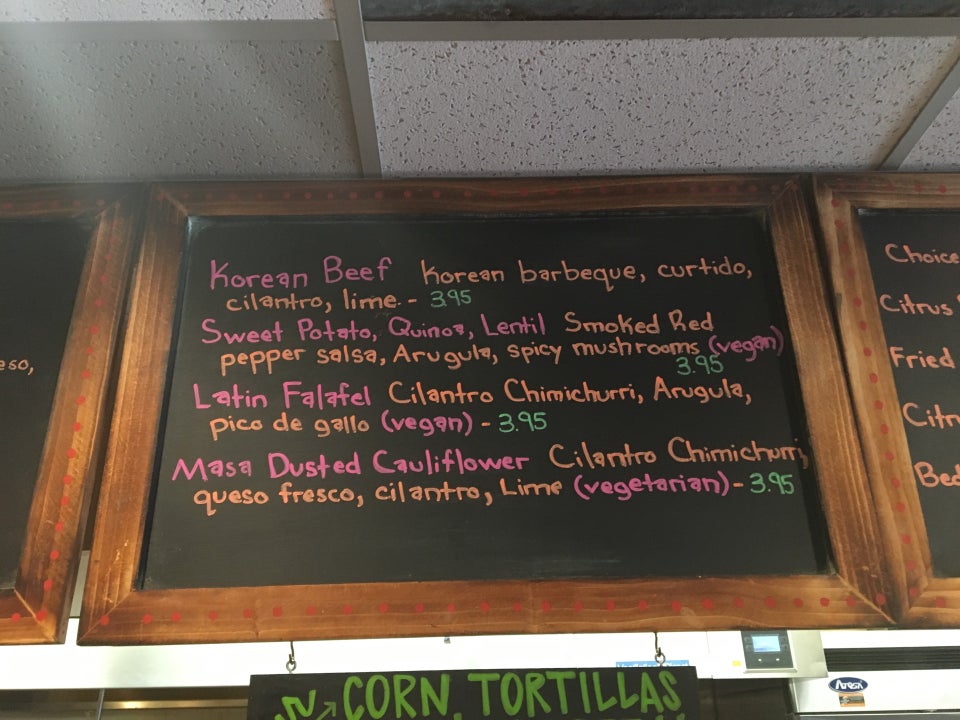 Korean Beef Korean barbeque, curtido,
cilantro, lime. - 3.95
Sweet Potato, Quinoa, Lentil Smoked Red
pepper salsa, Arugula, spicy mushrooms (vegan)
3.95
Latin Falafel Cilantro Chimichurri, Arugula,
pico de gallo (vegan) - 3.95
Masa Dusted Cauliflower Cilantro Chimichurri,
queso fresco, cilantro, Lime (vegetarian) - 3.95
eso,
Choice
Citrus
Fried
Citr
Bed
CORN TORTILLAS
Atosa